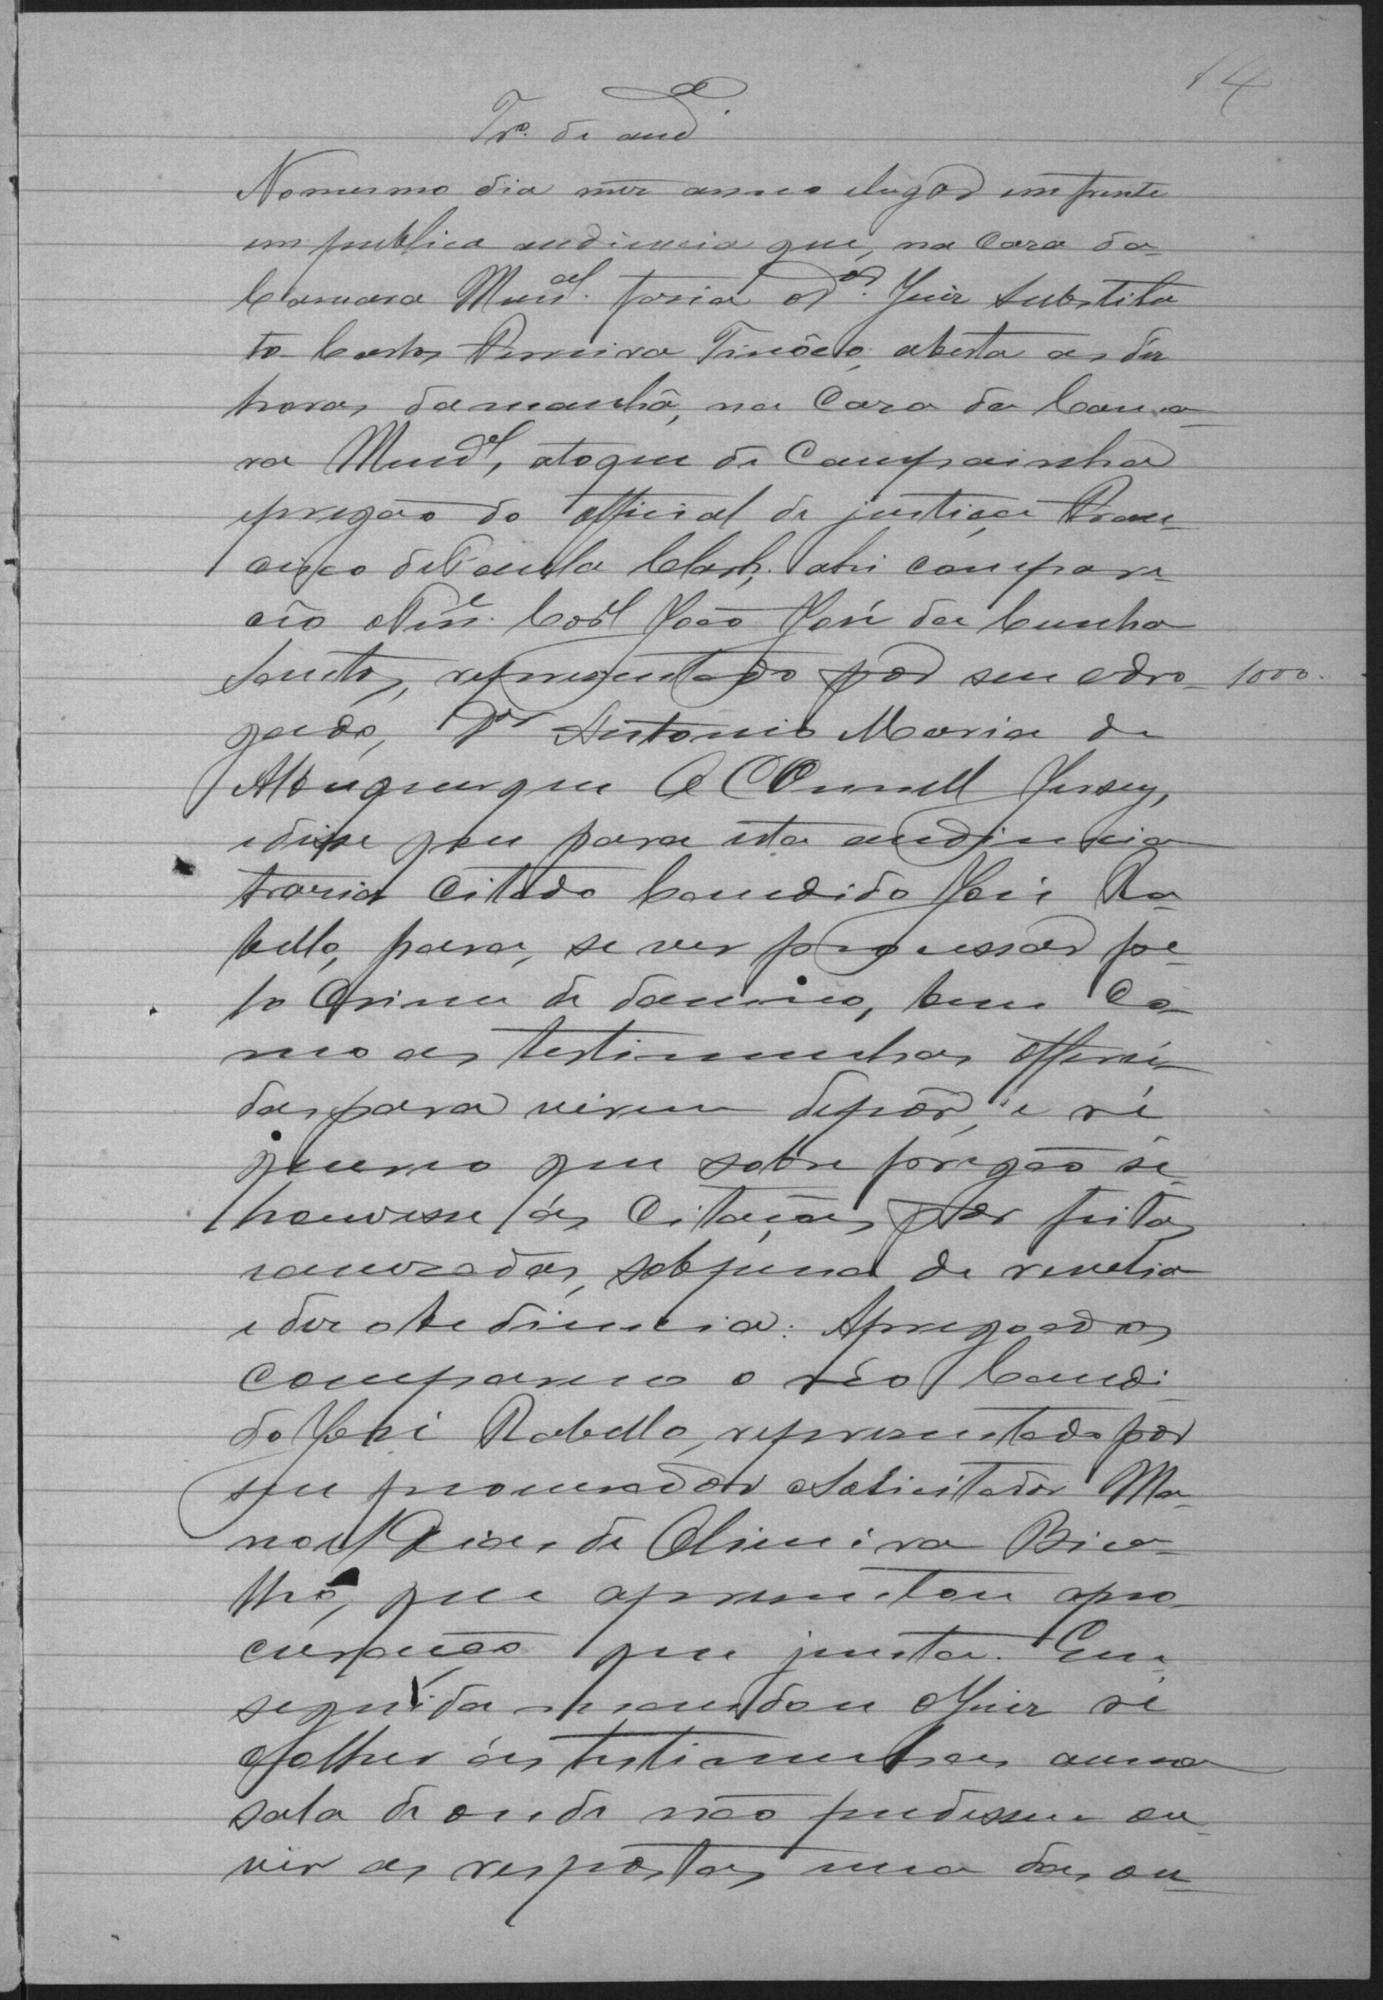 14
Tr.º de aud.e
No mesmo dia mez anno e lugar em frente
em publica audiencia que, na Caza da
Camara Mun.al fasia o D.or Juiz Substitu
to Carlos Ferreira Tinôco, aberta as dez
horas da manhã, na Caza da Cama
ra Mun.al, a toque de Campainha
e pregão do official de justiça Fran
cisco de Paula ahi compare
ceo o Ten.e Cor.el João José da Cunha
Santos, representado por seu advo 1000
gado, Dr Antonio Maria de
Albuquerque O'Connell Jersey,
e disse que para esta audiencia
trasia Citado Candido José Ra
bello, para, se ver processar pe
lo Crime de damno, bem Co
mo as testimunhas offereci
das para virem depôr, e re
quereo que sobre pregão se
houvesse as Citações por feitas
e accuzadas, sob pena de revelia
e dezobediencia. Apregoados
compareceo o réo Candi
do José Rabello, representado por
seu procurador o Solicitador Ma
noel Dias de Oliveira Bica
lho, que apresentou a pro
curação que junta. Em
seguida mandou o Juiz re
colher as testimunhas a uma
sala de onde não pudessem ou
vir as respostas uma das ou